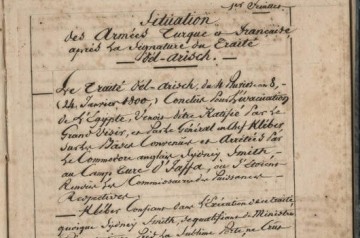 1er Feuillet.
Situation
Des Armées Turque et Française
après la Signature du Traité
D'El-arisch.
Le Traité D'El-arisch, du 4 Pluviose an 8,
(24 Janvier 1800,) Conclus pour l'évacuation
de l'Egypte, Venoit d'être Ratifié par le
Grand Visir, et par le Général en chef Kléber
sur les Bases Convenues et arrêtées par
le Commodore anglais Sydney Smith,
au Camp turc d'Jaffa, ou s'étoient
Rendus les Commissaires des Puissances
Respectives.
Kléber Confiant dans l'Exécution de ce traité,
quoique Sydney Smith,
la Sublime Porte,